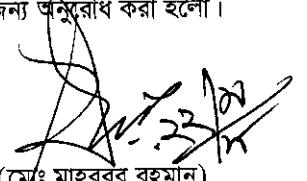 জন্য অনুরোধ করা হলো।
(মোঃ মাহবুবুর রহমান)